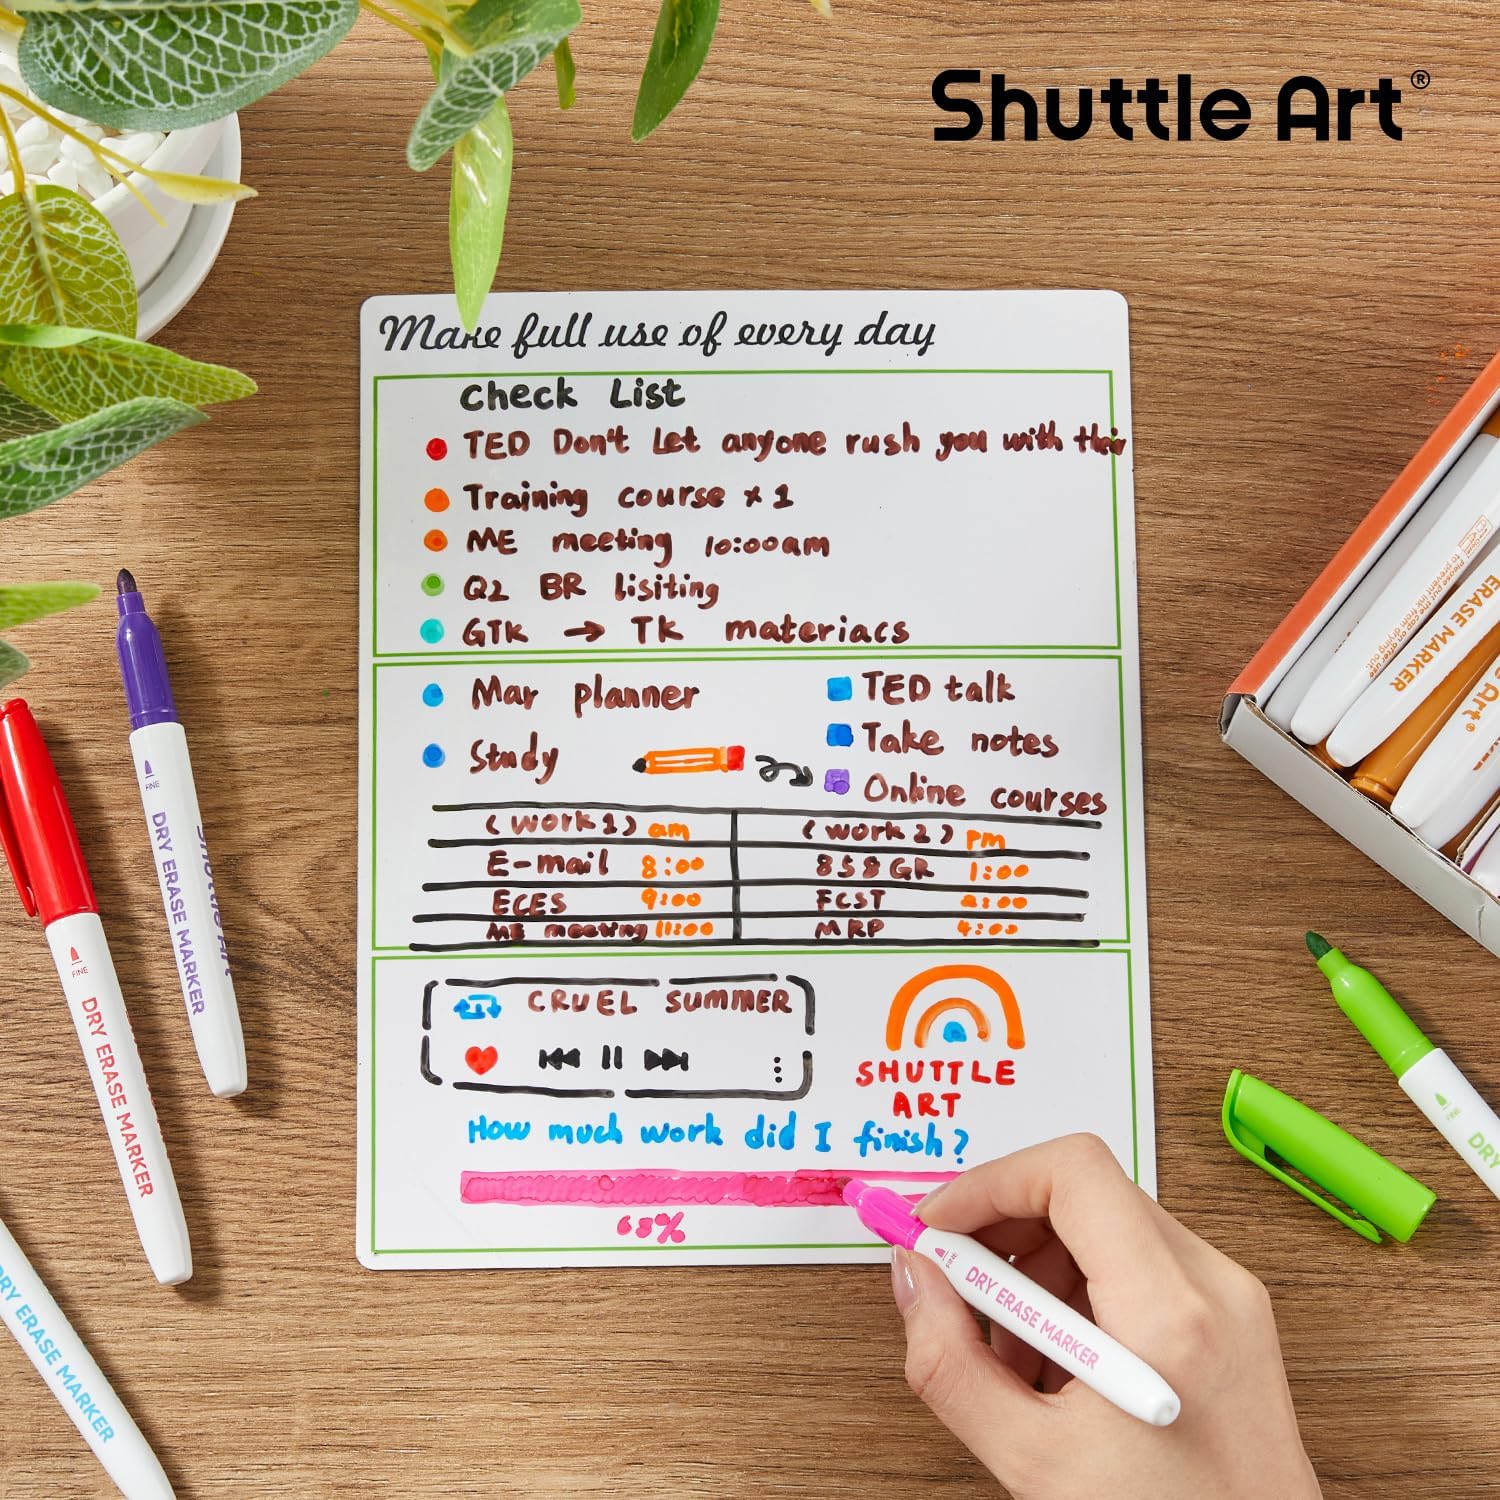 Shuttle Art®
Make full use of every day
Check List
TED Don't Let anyone rush you with their
Training course × 1
ME meeting 10:00am
Q2 BR lisiting
GTK → TK materiacs
Mar planner
Study
TED talk
Take notes
Online courses
(work1) am
(work2) pm
E-mail 8:00
858GR 1:00
ECES 9:00
FCST 2:00
ME meeting 11:00
MRP 4:00
CRUEL SUMMER
SHUTTLE
ART
How much work did I finish?
63%
FINE
DRY ERASE MARKER
Shuttle Art
FINE
DRY ERASE MARKER
DRY ERASE MARKER
FINE
DRY ERASE MARKER
FINE
DRY
Please put the cap on after use
to prevent ink from drying out
ERASE MARKER
Art®